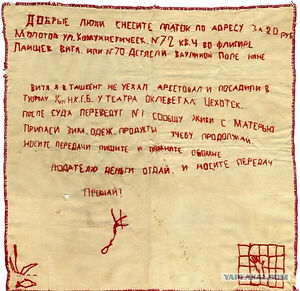 ДОБРЫЕ ЛЮДИ СНЕСИТЕ ПЛАТОК ПО АДРЕСУ ЗА 20 РУБ
МОЛОТОВ УЛ. КОМУНИСТИЧЕСК. №72 КВ.4 ВО ФЛИГИРЕ
ЛАИЩЕВ ВИТЯ. ИЛИ №70
ВИТЯ. Я В ТАШКЕНТ НЕ УЕХАЛ АРЕСТОВАЛ И ПОСАДИЛИ В
ТЮРМУ Н.К.Г.Б. У ТЕАТРА ОКЛЕВЕТАЛ ЦЕХОТСК.
ПОСЛЕ СУДА ПЕРЕВЕДУТ №1 СООБЩУ. ЖИВИ С МАТЕРЬЮ
ПРИПАСИ ЗИМ. ОДЕЖ. ПРОДУКТЫ УЧЕБУ ПРОДОЛЖАЙ.
НОСИТЕ ПЕРЕДАЧИ ПИШИТЕ И ПОМНИТЕ ОБОМНЕ
ПОДАТЕЛЮ ДЕНЬГИ ОТДАЙ. И НОСИТЕ ПЕРЕДАЧ
ПРОЩАЙ!
YAPLAKAL.COM